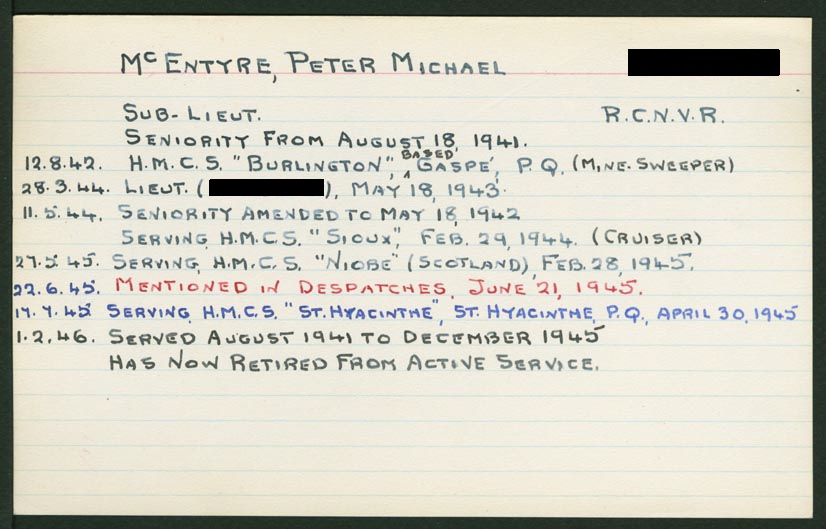 McENTYRE, PETER MICHAEL
SUB-LIEUT. R.C.N.V.R.
SENIORITY FROM AUGUST 18, 1941.
12.8.42. H.M.C.S. "BURLINGTON", BASED GASPÉ, P.Q. (MINE-SWEEPER)
28.3.44. LIEUT. ( ), MAY 18, 1943.
11.5.44. SENIORITY AMENDED TO MAY 18, 1942
SERVING, H.M.C.S. "SIOUX", FEB. 29, 1944. (CRUISER)
27.5.45. SERVING, H.M.C.S. "NIOBE" (SCOTLAND), FEB. 28, 1945.
22.6.45. MENTIONED IN DESPATCHES, JUNE 21, 1945.
17.7.45 SERVING, H.M.C.S. "ST. HYACINTHE", ST. HYACINTHE, P.Q., APRIL 30, 1945
1.2.46. SERVED AUGUST 1941 TO DECEMBER 1945
HAS NOW RETIRED FROM ACTIVE SERVICE.